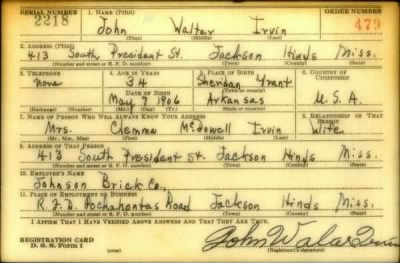 SERIAL NUMBER 1. NAME (Print) ORDER NUMBER
2218 John Walter Irvin 479
(First) (Middle) (Last)
2. ADDRESS (Print)
413 South President St. Jackson Hinds Miss.
(Number and street or R. F. D. number) (Town) (County) (State)
3. TELEPHONE 4. AGE IN YEARS 5. PLACE OF BIRTH 6. COUNTRY OF CITIZENSHIP
None 34 Sheridan Grant
(Town or county)
DATE OF BIRTH
May 7 1906 Arkansas U.S.A.
(Exchange) (Number) (Mo.) (Day) (Yr.) (State or country)
7. NAME OF PERSON WHO WILL ALWAYS KNOW YOUR ADDRESS 8. RELATIONSHIP OF THAT PERSON
Mrs. Clemma McDowell Irvin Wife
(Mr., Mrs., Miss) (First) (Middle) (Last)
9. ADDRESS OF THAT PERSON
413 South President St. Jackson Hinds Miss.
(Number and street or R. F. D. number) (Town) (County) (State)
10. EMPLOYER'S NAME
Johnson Brick Co.
11. PLACE OF EMPLOYMENT OR BUSINESS
R.F.D. Pochahontas Road Jackson Hinds Miss.
(Number and street or R. F. D. number) (Town) (County) (State)
I AFFIRM THAT I HAVE VERIFIED ABOVE ANSWERS AND THAT THEY ARE TRUE.
REGISTRATION CARD
D. S. S. Form 1 (Registrant's signature)
John